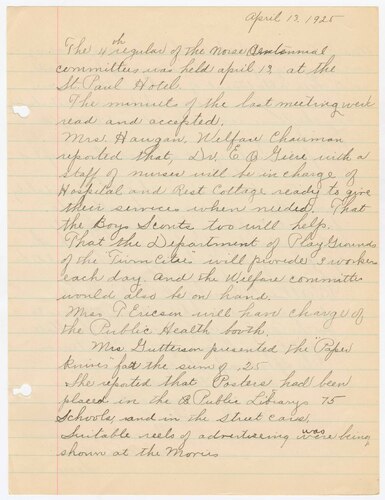 April 13, 1925
The 4th regular of the Norse Centennial
committees was held april 13, at the
St. Paul Hotel.
The minuits of the last meeting were
read and accepted,
Mrs Haugan, Welfare Chairman
reported that, Dr. E O Giere with a
staff of nurses will be in charge of
Hospital and Rest Cottage ready to give
their services when needed. That
the Boys Scouts too will help.
That the Department of Play Grounds
of the Twin Cities will provide 3 workers
each day and the Welfare committee
would also be on hand.
Miss P Ericson will have charge of
the Public Health booth,
Mrs Gutterson presented the Paper
knives for the sum of .25
She reported that Posters had been
placed in the 8 Public Librarys 75
Schools and in the Street cars
Suitable reels of advertising was were being
shown at the Movies